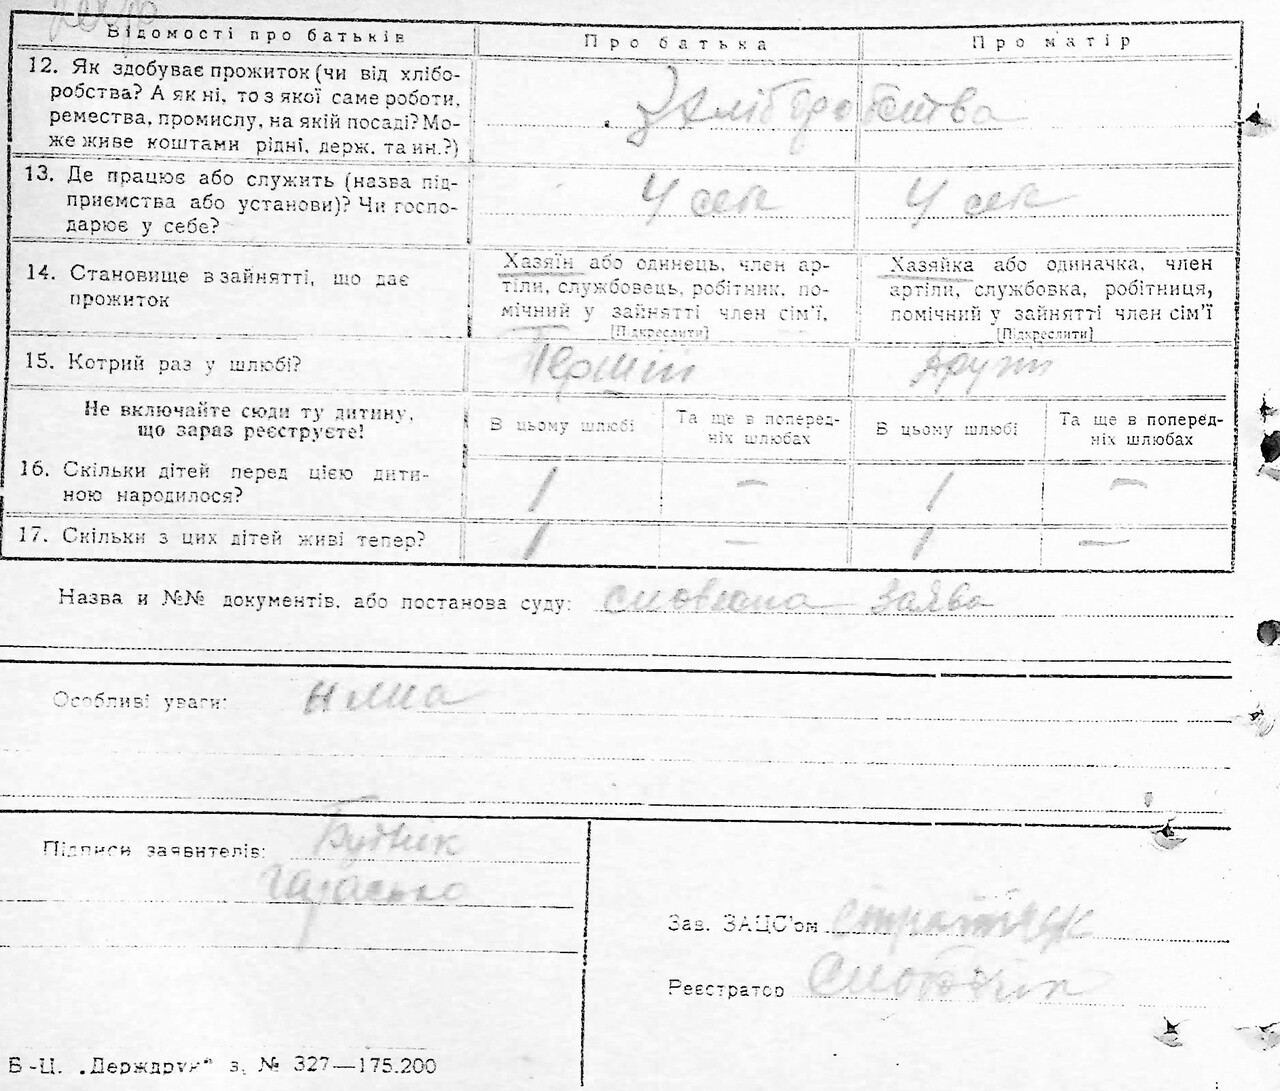 Відомості про батьків Про батька Про матір
12. Як здобуває прожиток (чи від хлібо-
робства? А як ні, то з якої саме роботи,
ремества, промислу, на якій посаді? Мо-
же живе коштами рідні, держ. та ин.?)
З хліборобства
13. Де працює або служить (назва під-
приємства або установи)? Чи госпо-
дарює у себе?
У себе У себе
14. Становище в зайнятті, що дає
прожиток
Хазяїн або одинець, член ар-
тіли, службовець, робітник, по-
мічний у зайнятті член сім'ї.
[Підкреслити]
Хазяйка або одиначка, член
артіли, службовка, робітниця,
помічний у зайнятті член сім'ї
[Підкреслити]
15. Котрий раз у шлюбі? Перший Други
Не включайте сюди ту дитину,
що зараз реєструєте!
В цьому шлюбі
Та ще в поперед-
ніх шлюбах
В цьому шлюбі
Та ще в поперед-
ніх шлюбах
16. Скільки дітей перед цією дити-
ною народилося?
1 — 1 —
17. Скільки з цих дітей живі тепер? 1 — 1 —
Назва и №№ документів, або постанова суду: словесна заява
Особливі уваги: нима
Підписи заявителів: Будник
Гарасько
Зав. ЗАЦС'ом
Реєстратор Слободник
Б-Ц. „Держдрук“ з. № 327—175.200